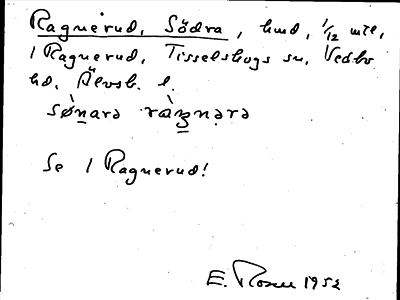 Ragnerud, Södra, hmd, 1/12 mtl,
1 Ragnerud, Tisselskogs sn, Vedbo
hd, Älvsb. l.
Se 1 Ragnerud!
E. Rosell 1952